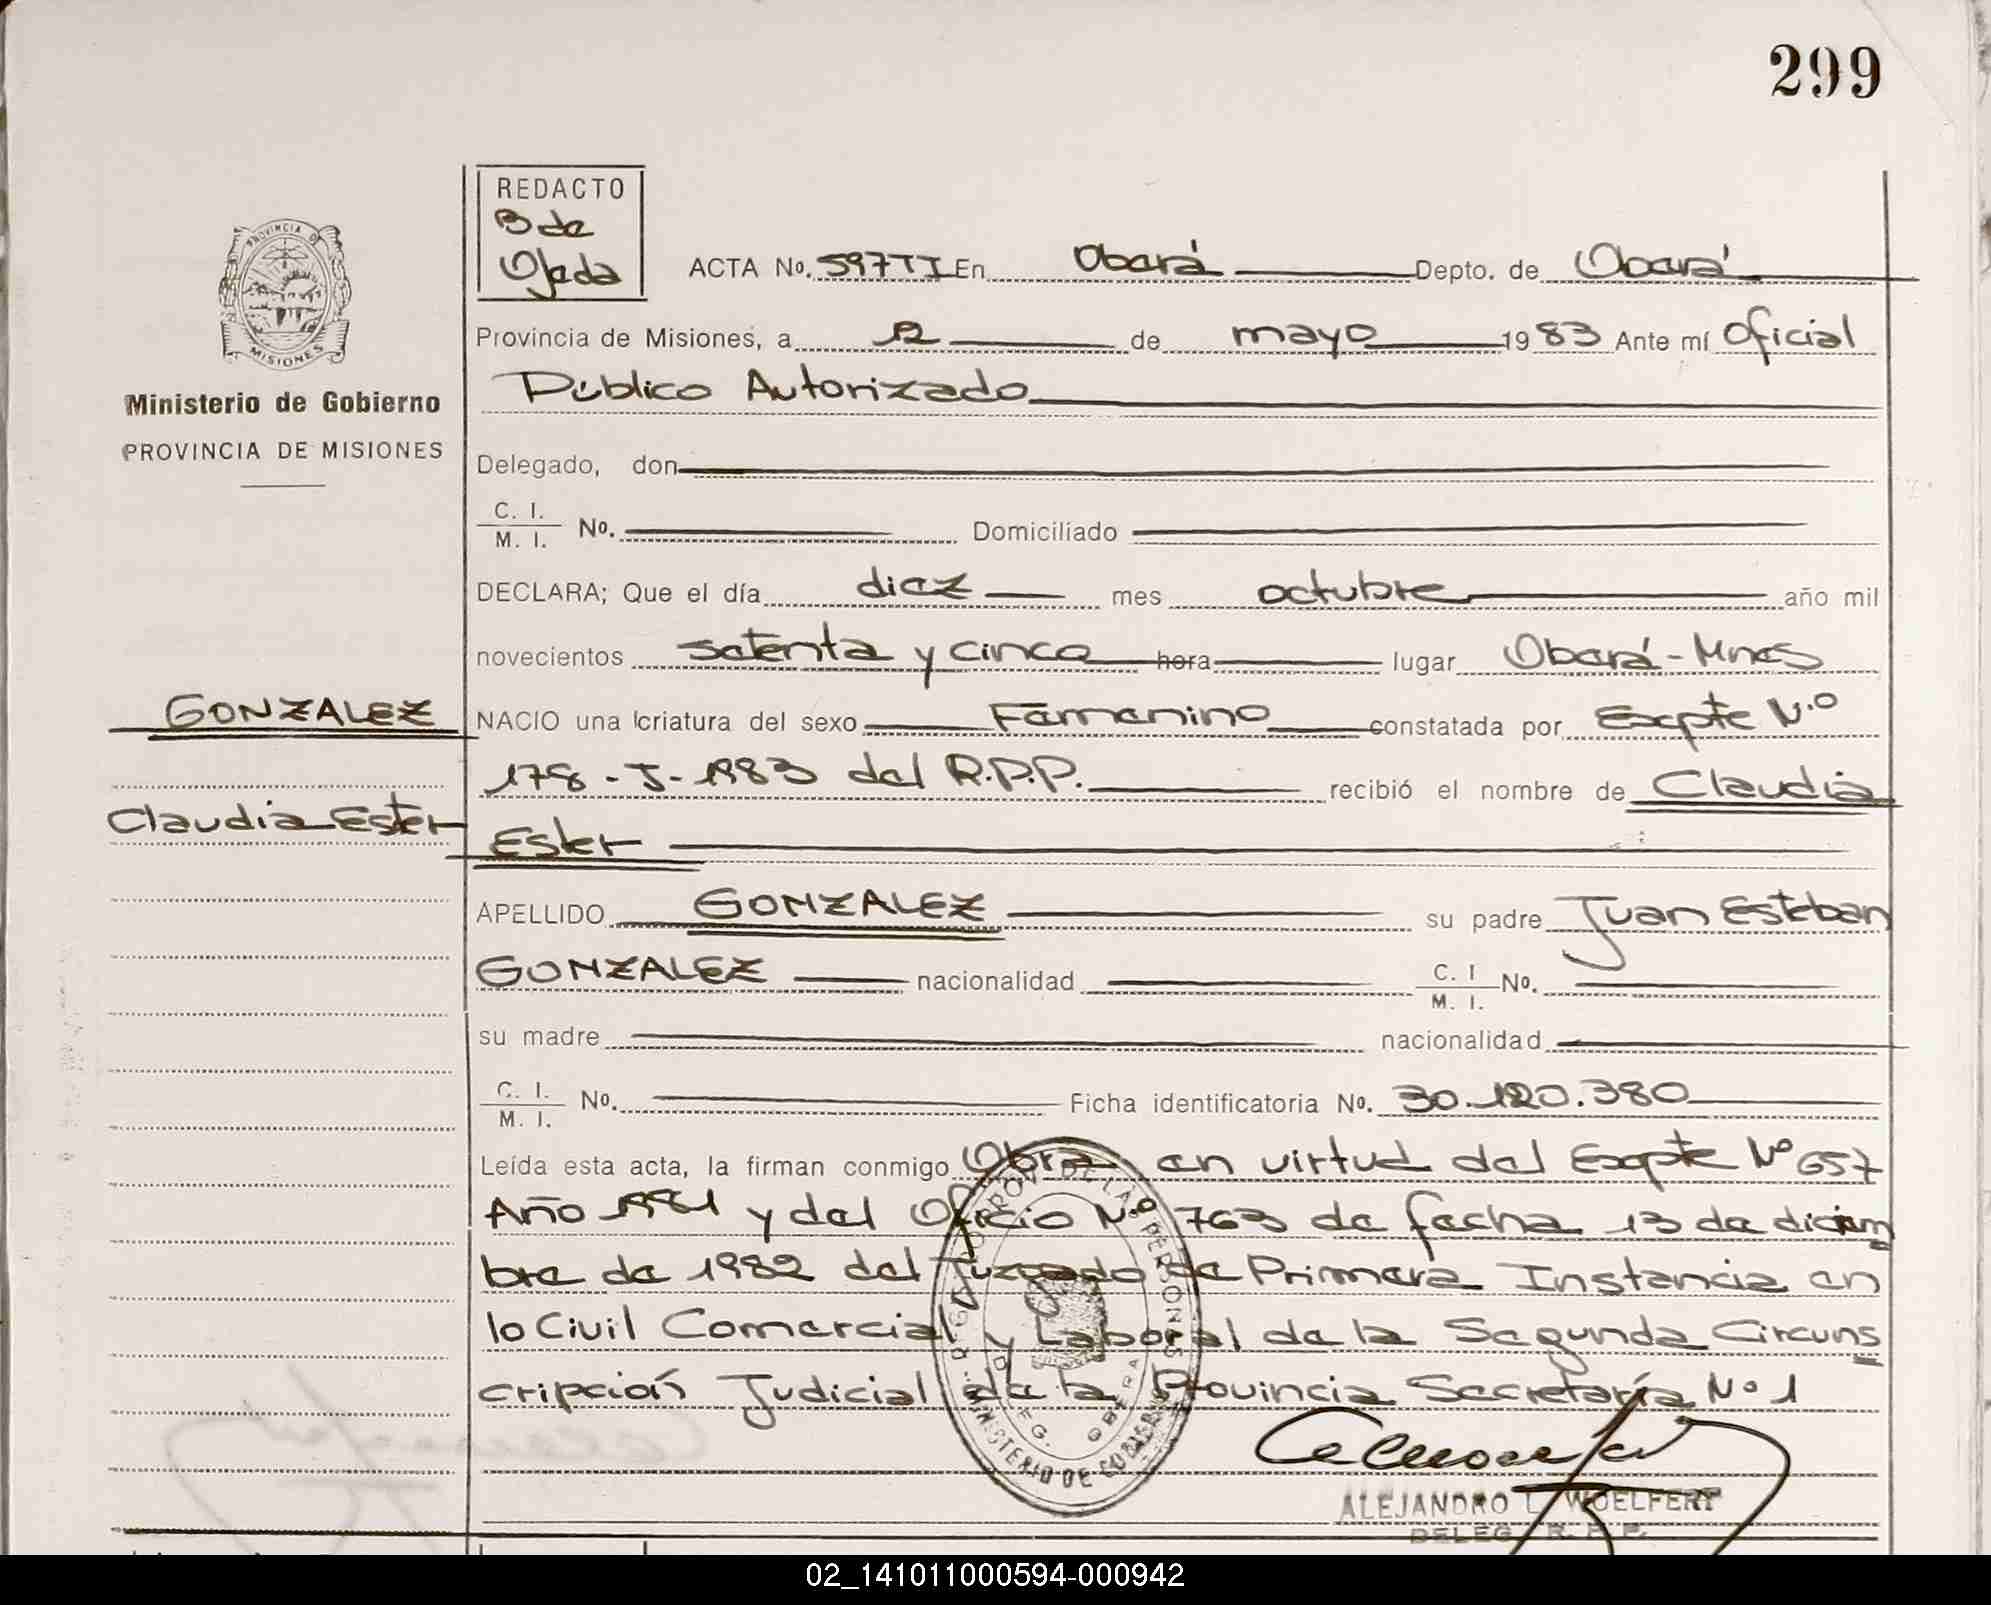 299
REDACTO
B de
Ojeda
ACTA No. 597 TI En Oberá Depto. de Oberá
PROVINCIA DE
MISIONES
Provincia de Misiones, a 12 de mayo 1983 Ante mí Oficial
Público Autorizado
Ministerio de Gobierno
PROVINCIA DE MISIONES
Delegado, don
C. I.
M. I. No. Domiciliado
DECLARA; Que el día diez mes octubre año mil
novecientos setenta y cinco hora lugar Oberá - Mnes
GONZALEZ
NACIO una criatura del sexo Femenino constatada por Expte N.º
178 - J - 1983 del R.P.P. recibió el nombre de Claudia
Claudia Ester
Ester
APELLIDO GONZALEZ su padre Juan Esteban
GONZALEZ nacionalidad C. I
M. I. No.
su madre nacionalidad
C. I.
M. I. No. Ficha identificatoria No. 30.120.380
Leída esta acta, la firman conmigo Obra en virtud del Expte Nº 657
Año 1981 y del Oficio N.º 763 de fecha 13 de diciem
bre de 1982 del Juzgado de Primera Instancia en
lo Civil Comercial y Laboral de la Segunda Circuns
cripción Judicial de la Provincia Secretaría Nº 1
MINISTERIO DE GOBIERNO
DELEG. OBERA
ALEJANDRO L. WOELFERT
DELEG. R. P. P.
02_141011000594-000942